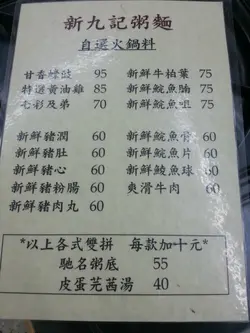 新九記粥麵
自選火鍋料
甘香蠔豉 95
特選黃油雞 85
七彩及弟 70
新鮮牛柏葉 75
新鮮鯇魚腩 75
新鮮鯇魚咀 75
新鮮豬潤 60
新鮮豬肚 60
新鮮豬心 60
新鮮豬粉腸 60
新鮮豬肉丸 60
新鮮鯇魚骨 60
新鮮鯇魚片 60
新鮮鯪魚球 60
爽滑牛肉 60
*以上各式雙拼 每款加十元*
馳名粥底 55
皮蛋芫茜湯 40